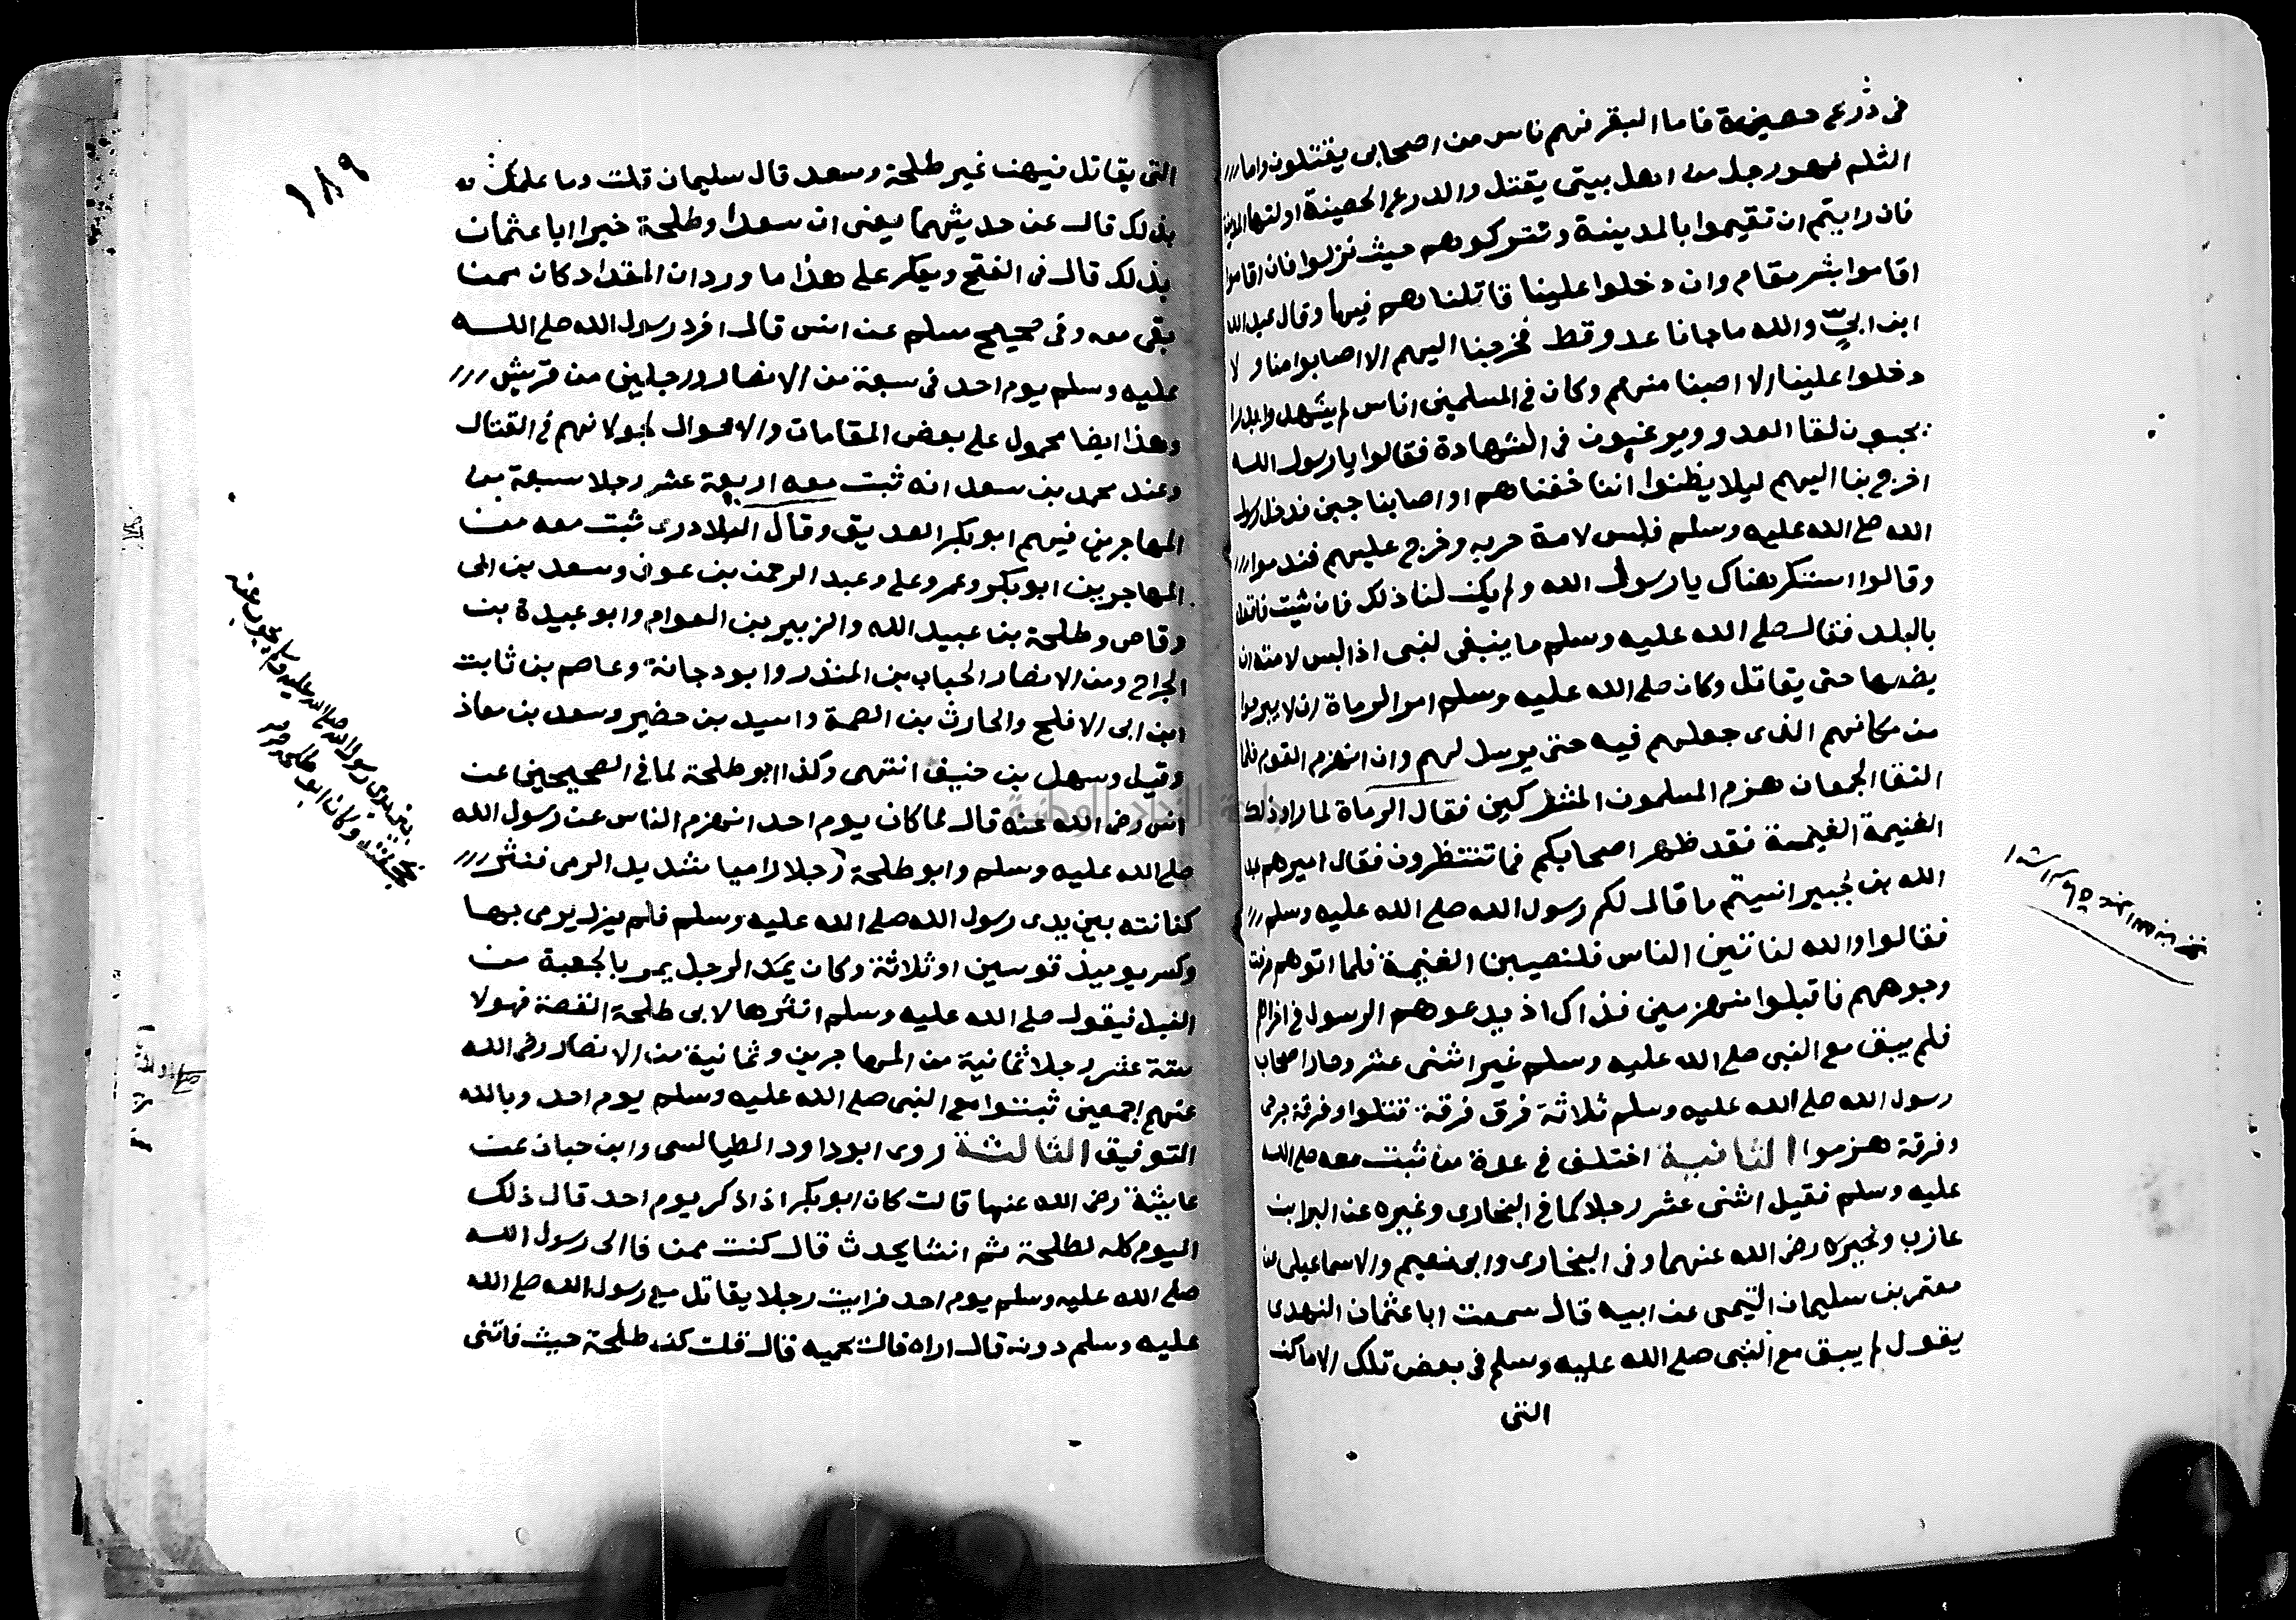 في درعي حصينة فاما البقر فهم ناس من اصحابي يقتلون واما
الثلم فهو رجل من اهل بيتي يقتل والدرع الحصينة اولتها المدينة
فان رايتم ان تقيموا بالمدينة وتتركوهم حيث نزلوا فان اقاموا
اقاموا بشر مقام وان دخلوا علينا قاتلناهم فيها وقال عبد الله
ابن ابيّ والله ماجانا عدو قط فخرجنا اليهم الا اصابوا منا ولا
دخلوا علينا الا اصبنا منهم وكان في المسلمين اناس لم يشهدوا بدرا
يحبون لقا العدو ويرغبون في الشهادة فقالوا يا رسول الله
اخرج بنا اليهم ليلا يظنوا اننا خفناهم او اصابنا جبن فدخل رسول
الله صلى الله عليه وسلم فلبس لامة حربه وخرج عليهم فندموا
وقالوا استكرهناك يا رسول الله ولم يكن لنا ذلك فان شيت فاقعد
بالبلد فقال صلى الله عليه وسلم ما ينبغي لنبي اذا لبس لامته ان
يضعها حتى يقاتل وكان صلى الله عليه وسلم امر الرماة ان لا يبرحوا
من مكانهم الذي جعلهم فيه حتى يرسل لهم وان انهزم القوم فلما
التقا الجمعان هزم المسلمون المشركين فقال الرماة لما راوا ذلك
الغنيمة الغنيمة فقد ظهر اصحابكم فما تنتظرون فقال اميرهم عبد
الله بن جبير انسيتم ما قال لكم رسول الله صلى الله عليه وسلم
فقالوا والله لناتين الناس فلنصيبن الغنيمة فلما اتوهم صرفت
وجوههم فاقبلوا منهزمين فذاك اذ يدعوهم الرسول في اخراهم
فلم يبق مع النبي صلى الله عليه وسلم غير اثنى عشر وصار اصحاب
رسول الله صلى الله عليه وسلم ثلاثة فرق فرقة قتلوا وفرقة جرحى
وفرقة هزموا الثانية اختلف في عدة من ثبت معه صلى الله
عليه وسلم فقيل اثنى عشر رجلا كما في البخاري وغيره عن البرا بن
عازب وغيره رضي الله عنهما وفي البخاري وابي نعيم والاسماعيلي عن
معتمر بن سليمان التيمى عن ابيه قال سمعت ابا عثمان النهدى
يقول لم يبق مع النبي صلى الله عليه وسلم في بعض تلك الاماكن
التي
١٨٩
التي يقاتل فيهن غير طلحة وسعد قال سليمان قلت وما علمك
بذلك قال عن حديثهما يعني ان سعدا وطلحة خبرا ابا عثمان
بذلك قال في الفتح ويعكر على هذا ما ورد ان المقداد كان ممن
بقى معه وفي صحيح مسلم عن انس قال افرد رسول الله صلى الله
عليه وسلم يوم احد في سبعة من الانصار ورجلين من قريش
وهذا ايضا محمول على بعض المقامات والاحوال لجولانهم في القتال
وعند محمد بن سعد انه ثبت معه اربعة عشر رجلا سبعة من
المهاجرين فيهم ابو بكر الصديق وقال البلادري ثبت معه من
المهاجرين ابو بكر وعمر وعلي وعبد الرحمن بن عوف وسعد بن ابي
وقاص وطلحة بن عبيد الله والزبير بن العوام وابو عبيدة بن
الجراح ومن الانصار الحباب بن المنذر وابو دجانة وعاصم بن ثابت
ابن ابي الافلح والحارث بن الصمة واسيد بن حضير وسعد بن معاذ
وقيل وسهل بن حنيف انتهى وكذا ابو طلحة لما في الصحيحين عن
انس رضي الله عنه قال لما كان يوم احد انهزم الناس عن رسول الله
صلى الله عليه وسلم وابو طلحة رجلا راميا شديد الرمى فنثر
كنانته بين يدي رسول الله صلى الله عليه وسلم فلم يزل يرمى بها
وكسر يوميذ قوسين او ثلاثة وكان يمر الرجل يمر بالجعبة من
النبل فيقول صلى الله عليه وسلم انثرها لابي طلحة القصة فهولا
ستة عشر رجلا ثمانية من المهاجرين وثمانية من الانصار رضي الله
عنهم اجمعين ثبتوا مع النبي صلى الله عليه وسلم يوم احد وبالله
التوفيق الثالثة روى ابو داود الطيالسى وابن حبان عن
عايشة رضي الله عنها قالت كان ابو بكر اذا ذكر يوم احد قال ذلك
اليوم كله لطلحة ثم انشا يحدث قال كنت ممن فا الى رسول الله
صلى الله عليه وسلم يوم احد فرايت رجلا يقاتل مع رسول الله صلى الله
عليه وسلم دونه قال اراه قالت يحميه قال قلت كن طلحة حيث فاتني
بين يدي رسول الله صلى الله عليه وسلم مجوب عنه
بحجفته وكان ابو طلحة
جامعة النجاح الوطنية